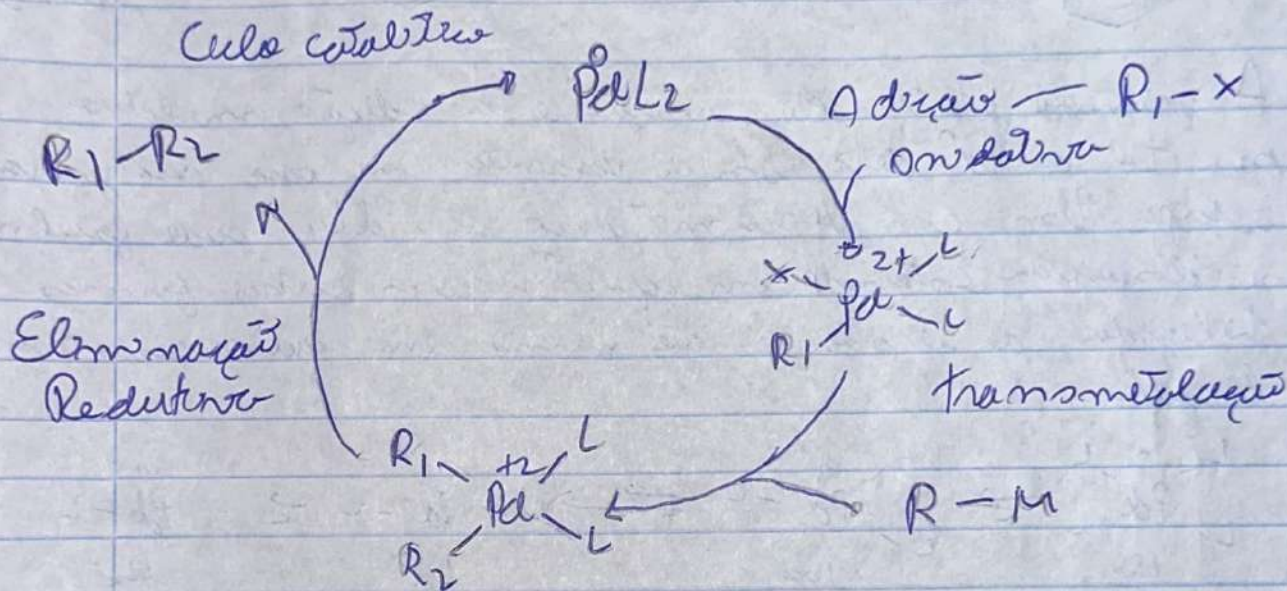 Ciclo catalítico
0
PdL2
Adição — R1-X
Oxidativa
R1-R2
2+
X L
Pd
R1 L
Eliminação
Redutiva
transmetalação
R1 +2 L
Pd
R2 L
R-M